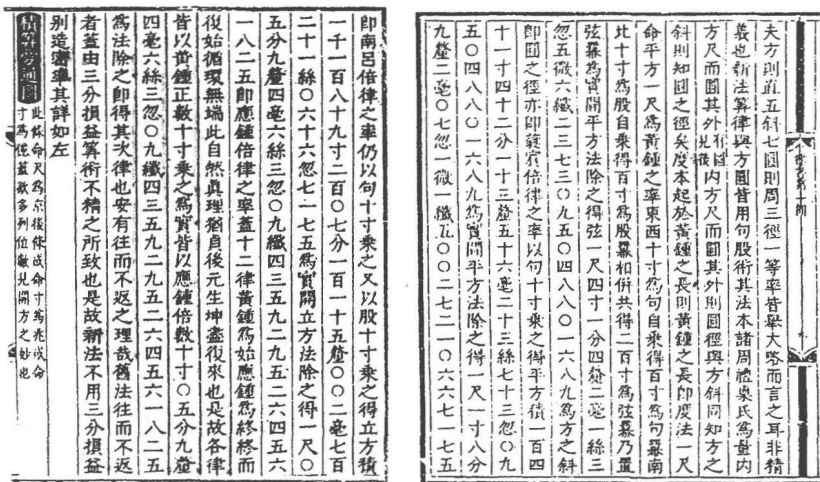 夫方則直五斜七圓則周三徑一等率皆舉大略而言之耳非精
義也新法算律與方圓皆用句股術其法本諸周禮㮚氏為量内
方尺而圓其外内方尺而圓其外則圓徑與方斜同知方之
斜則知圓之徑矣度本起於黃鍾之長則黃鍾之長即度法一尺
命平方一尺為黃鍾之率東西十寸為句自乘得百寸為句冪南
北十寸為股自乘得百寸為股冪相併共得二百寸為弦冪乃置
弦冪為實開平方法除之得弦一尺四寸一分四釐二毫一絲三
忽五微六纖二三七三〇九五〇四八八〇一六八九為方之斜
即圓之徑亦即蕤賓倍律之率以句十寸乘之得平方積一百四
十一寸四十二分一十三釐五十六毫二十三絲七十三忽〇九
五〇四八八〇一六八九為實開平方法除之得一尺一寸八分
九釐二毫〇七忽一微一纖五〇〇二七二一〇六六七一七五
即南呂倍律之率仍以句十寸乘之又以股十寸乘之得立方積
一千一百八十九寸二百〇七分一百一十五釐〇〇二毫七百
二十一絲〇六十六忽七一七五為實開立方法除之得一尺〇
五分九釐四毫六絲三忽〇九纖四三五九二九五二六四五六
一八二五即應鍾倍律之率蓋十二律黃鍾為始應鍾為終終而
復始循環無端此自然真理猶貞後元生坤盡復來也是故各律
皆以黃鍾正數十寸乘之為實皆以應鍾倍數十寸〇五分九釐
四毫六絲三忽〇九纖四三五九二九五二六四五六一八二五
為法除之即得其次律也安有往而不返之理哉舊法往而不返
者蓋由三分損益算術不精之所致也是故新法不用三分損益
別造密率其詳如左
此條命尺為京後條或命寸為兆或命
寸為億蓋欲多列位數見開方之妙也